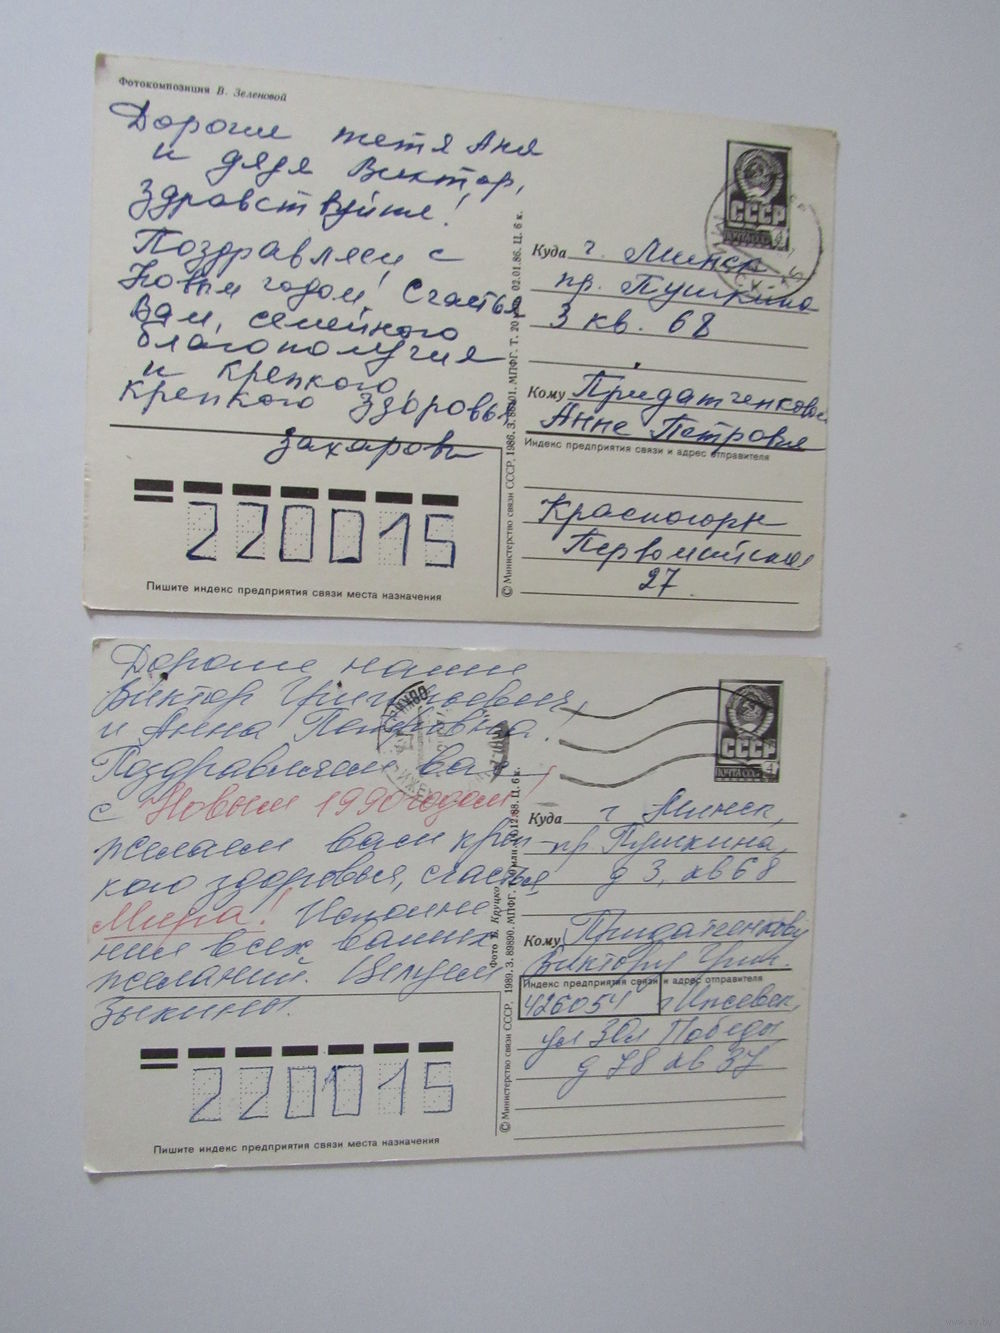 Фотокомпозиция В. Зеленовой
Дорогие тетя Аня
и дядя Виктор,
Здравствуйте!
Поздравляем с
Новым годом! Счастья
Вам, семейного
благополучия
и крепкого,
крепкого здоровья
Захаровы
220015
Пишите индекс предприятия связи места назначения
© Министерство связи СССР, 1986. З. 86101. МПФГ. Т. 20 02.01.86. Ц. 6 к.
СССР
ПОЧТА СССР 4
МИНСК
Куда г. Минск
пр. Пушкина
3 кв. 68
Кому Придатченковой
Анне Петровне
Индекс предприятия связи и адрес отправителя
Красногорск
Первомайская
27
Дорогие наши
Виктор Григорьевич
и Анна Петровна!
Поздравляем вас
с Новым 1990 годом!
желаем вам креп-
кого здоровья, счастья,
Мира! Исполне
ния всех ваших
желаний. Целуем
Зыкины.
220015
Пишите индекс предприятия связи места назначения
Фото В. Круцко
© Министерство связи СССР, 1989. З. 89890. МПФГ. 12.88. Ц. 6 к.
СССР
ПОЧТА СССР 4
Куда г Минск,
пр Пушкина,
д 3, кв 68
Кому Придатченкову
Виктору Григ.
Индекс предприятия связи и адрес отправителя
426054 г Ижевск,
ул 30л Победы
д 78 кв 37